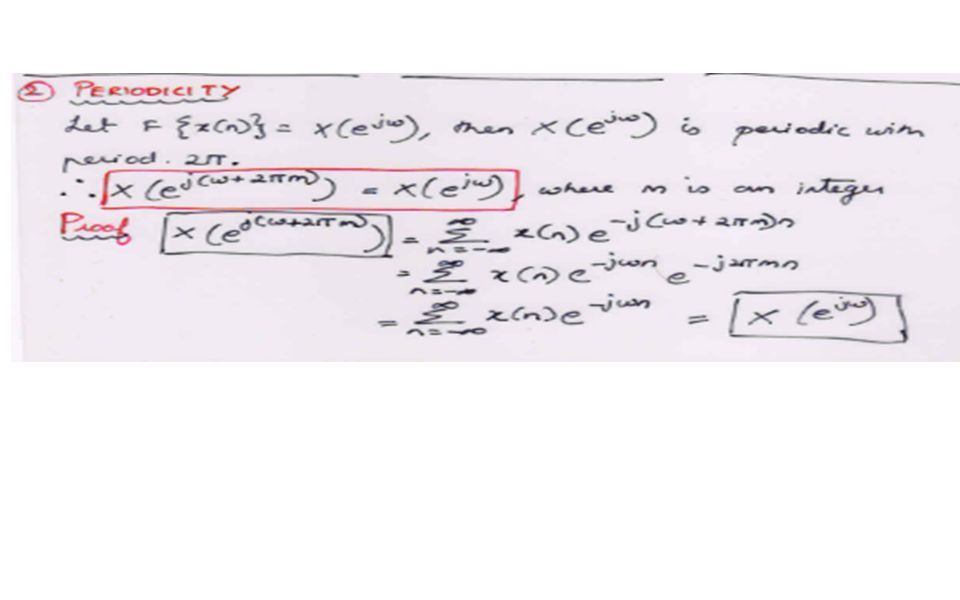 ② PERIODICITY
Let F {x(n)} = X(e^{jω}), then X(e^{jω}) is periodic with
period. 2π.
∴ X(e^{j(ω+2πm)}) = X(e^{jω}), where m is an integer
Proof X(e^{j(ω+2πm)}) = ∑_{n=-∞}^{∞} x(n) e^{-j(ω+2πm)n}
= ∑_{n=-∞}^{∞} x(n) e^{-jωn} e^{-j2πmn}
= ∑_{n=-∞}^{∞} x(n) e^{-jωn} = X(e^{jω})